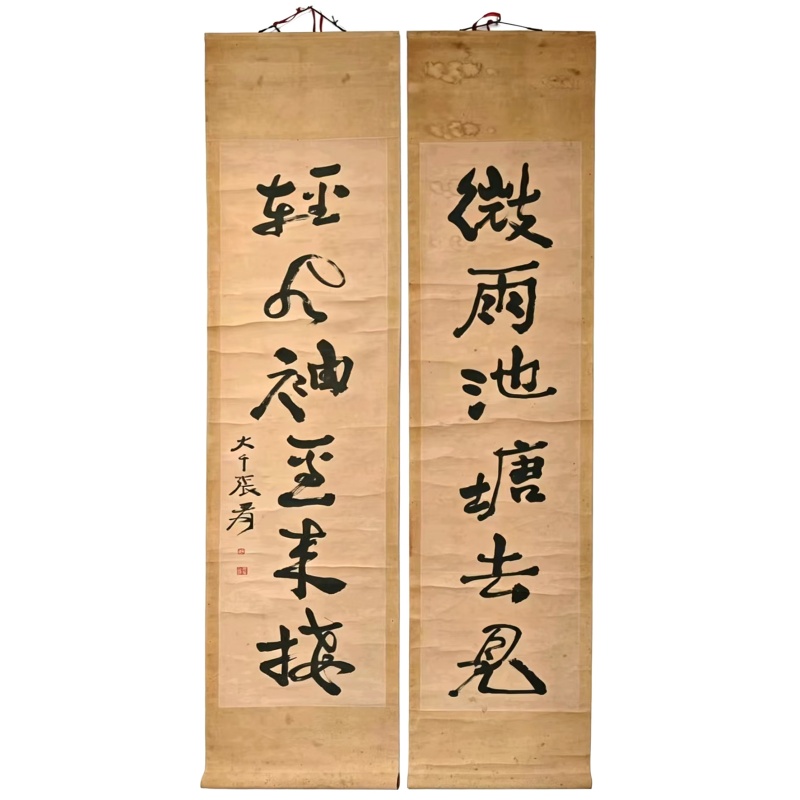 微雨池塘去見
輕風袖至来接
大千張爰